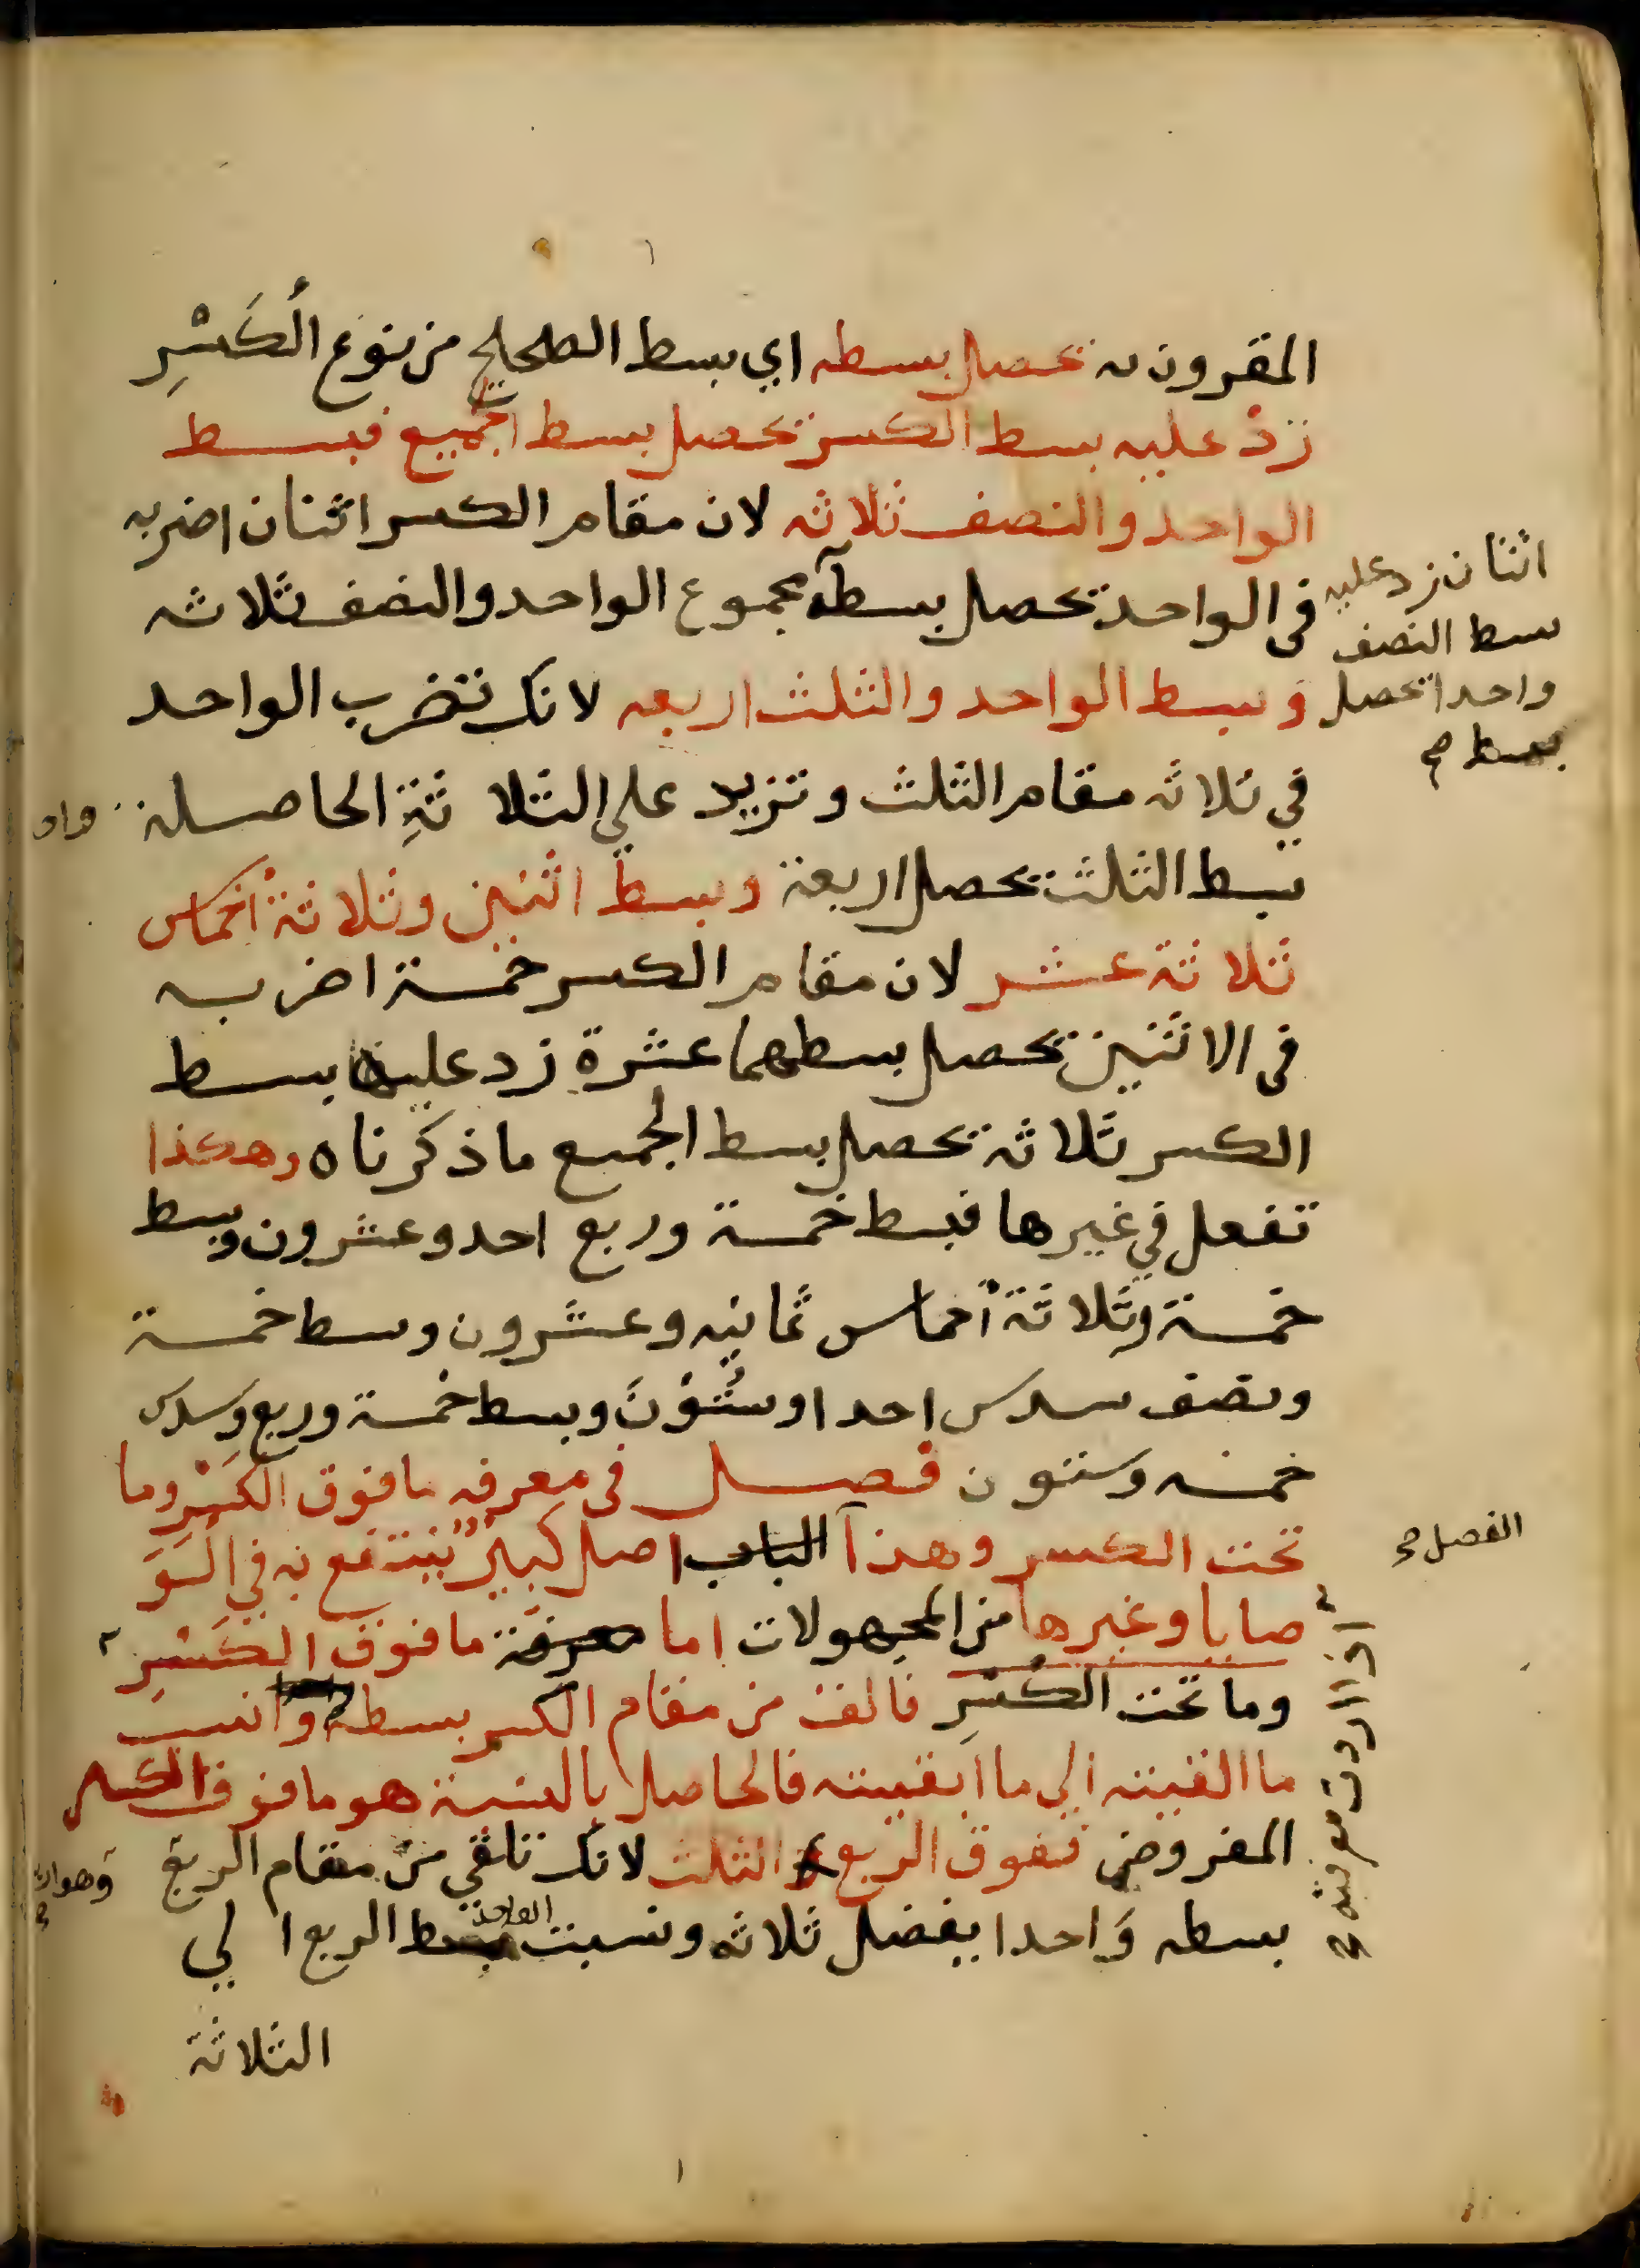 المقرون به تحصل بسطه اي بسط الصحيح من نوع الُكَسْرِ
زدْ عليه بسط الكسر تحصل بسط الجميع فبسط
الواحد والنصف ثلاثه لان مقام الكسر اثنان اضربه
في الواحد تحصل بسطه مجموع الواحد والنصف ثلاثه
وبسط الواحد والثلث اربعه لانك تضرب الواحد
في ثلاثه مقام الثلث وتزيد علي الثلا ثةِ الحاصلة
بسط الثلث تحصل اربعة وبسط اثنين وثلاثة أخماس
ثلاثة عشر لان مقام الكسر خمسة اضربه
في الاثنين تحصل بسطهما عشرة زد عليها بسط
الكسر ثلاثة تحصل بسط الجميع ما ذكرناه وهكذا
تفعل في غيرها فبسط خمسة وربع احد وعشرون وبسط
خمسة وثلاثة أخماس ثمانيه وعشرون وبسط خمسة
ونصف سدس احدا وستُوْنَ وبسط خمسة وربع وسدس
خمسه وستون فصل في معرفه ما فوق الكَسْرِ وما
تحت الكسر وهذا الباب اصل كبيرٌ ينتفع به في الوَ
صايا وغيرها من المجهولات اما معرفة ما فوق الكَسْرِ
وما تحت الكَسْرِ فالق من مقام الكسر بسطه وانسب
ما القيته الي ما ابقيته فالحاصل بالنسبة هو ما فوق الكسر
المفروض ففوق الربع الثلث لانك تلقي من مقام الربع
بسطه وَاحدا يفضل ثلاثه ونسبت بسط الربع ا لي
الواحد
الثلاثة
اثنان زد عليه
بسط النصف
واحدا تحصل
بسط
الفصل
اذا اردت معرفته
وهو اربعة